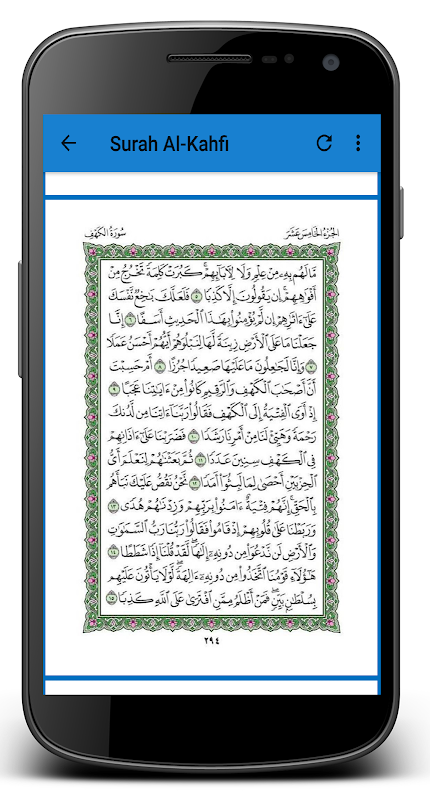 Surah Al-Kahfi
الجزء الخامس عشر
سورة الكهف
مَّا لَهُم بِهِۦ مِنْ عِلْمٍ وَلَا لِـَٔابَآئِهِمْ ۚ كَبُرَتْ كَلِمَةً تَخْرُجُ مِنْ
أَفْوَٰهِهِمْ ۚ إِن يَقُولُونَ إِلَّا كَذِبًا ٥ فَلَعَلَّكَ بَـٰخِعٌ نَّفْسَكَ
عَلَىٰٓ ءَاثَـٰرِهِمْ إِن لَّمْ يُؤْمِنُوا۟ بِهَـٰذَا ٱلْحَدِيثِ أَسَفًا ٦ إِنَّا
جَعَلْنَا مَا عَلَى ٱلْأَرْضِ زِينَةً لَّهَا لِنَبْلُوَهُمْ أَيُّهُمْ أَحْسَنُ عَمَلًا
٧ وَإِنَّا لَجَـٰعِلُونَ مَا عَلَيْهَا صَعِيدًا جُرُزًا ٨ أَمْ حَسِبْتَ
أَنَّ أَصْحَـٰبَ ٱلْكَهْفِ وَٱلرَّقِيمِ كَانُوا۟ مِنْ ءَايَـٰتِنَا عَجَبًا ٩
إِذْ أَوَى ٱلْفِتْيَةُ إِلَى ٱلْكَهْفِ فَقَالُوا۟ رَبَّنَآ ءَاتِنَا مِن لَّدُنكَ
رَحْمَةً وَهَيِّئْ لَنَا مِنْ أَمْرِنَا رَشَدًا ١٠ فَضَرَبْنَا عَلَىٰٓ ءَاذَانِهِمْ
فِى ٱلْكَهْفِ سِنِينَ عَدَدًا ١١ ثُمَّ بَعَثْنَـٰهُمْ لِنَعْلَمَ أَىُّ
ٱلْحِزْبَيْنِ أَحْصَىٰ لِمَا لَبِثُوٓا۟ أَمَدًا ١٢ نَّحْنُ نَقُصُّ عَلَيْكَ نَبَأَهُم
بِٱلْحَقِّ ۚ إِنَّهُمْ فِتْيَةٌ ءَامَنُوا۟ بِرَبِّهِمْ وَزِدْنَـٰهُمْ هُدًى ١٣
وَرَبَطْنَا عَلَىٰ قُلُوبِهِمْ إِذْ قَامُوا۟ فَقَالُوا۟ رَبُّنَا رَبُّ ٱلسَّمَـٰوَٰتِ
وَٱلْأَرْضِ لَن نَّدْعُوَا۟ مِن دُونِهِۦٓ إِلَـٰهًا ۖ لَّقَدْ قُلْنَآ إِذًا شَطَطًا ١٤
هَـٰٓؤُلَآءِ قَوْمُنَا ٱتَّخَذُوا۟ مِن دُونِهِۦٓ ءَالِهَةً ۖ لَّوْلَا يَأْتُونَ عَلَيْهِم
بِسُلْطَـٰنٍۭ بَيِّنٍ ۖ فَمَنْ أَظْلَمُ مِمَّنِ ٱفْتَرَىٰ عَلَى ٱللَّهِ كَذِبًا ١٥
٢٩٤